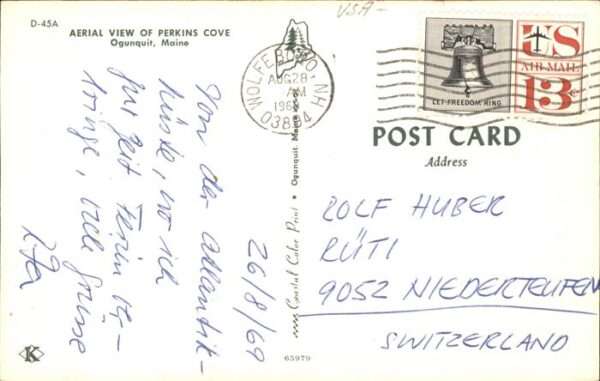 D-45A
AERIAL VIEW OF PERKINS COVE
Ogunquit, Maine
USA
WOLFEBORO, NH
AUG 28
AM
03894
LET FREEDOM RING
US
AIR MAIL
13c
POST CARD
Address
Von der Atlantik-
küste, wo ich
zur Zeit Ferien ver-
bringe, viele Grüsse
26/8/69
Coastal Color Print • Ogunquit, Maine
ROLF HUBER
RÜTI
9052 NIEDERTEUFEN
SWITZERLAND
K
65979